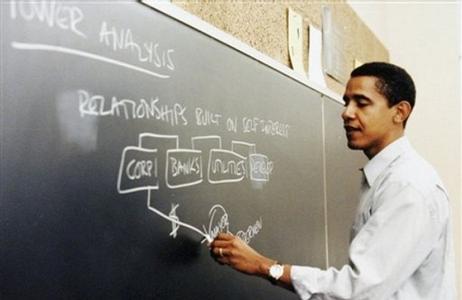 POWER ANALYSIS
RELATIONSHIPS BUILT ON SELF INTEREST
CORP BANKS UTILITIES
$